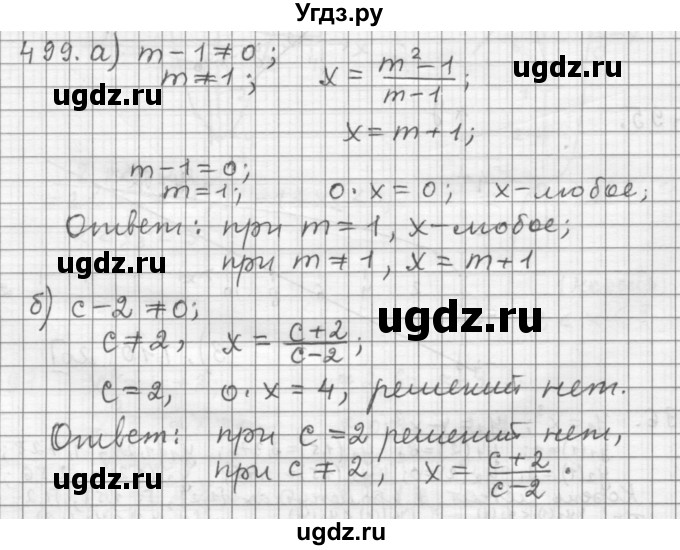 Угдз.ру
499. а) m - 1 ≠ 0;
m ≠ 1; x = (m² - 1)/(m - 1);
ugdz.ru ugdz.ru
x = m + 1;
m - 1 = 0;
m = 1; 0 · x = 0; x - любое;
Ответ: при m = 1, x - любое;
ugdz.ru при m ≠ 1, x = m + 1
б) c - 2 ≠ 0;
ugdz.ru
c ≠ 2, x = (c + 2)/(c - 2);
c = 2, 0 · x = 4, решений нет.
Ответ: при c = 2 решений нет,
при c ≠ 2, x = (c + 2)/(c - 2).
ugdz.ru ugdz.ru
ugdz.ru